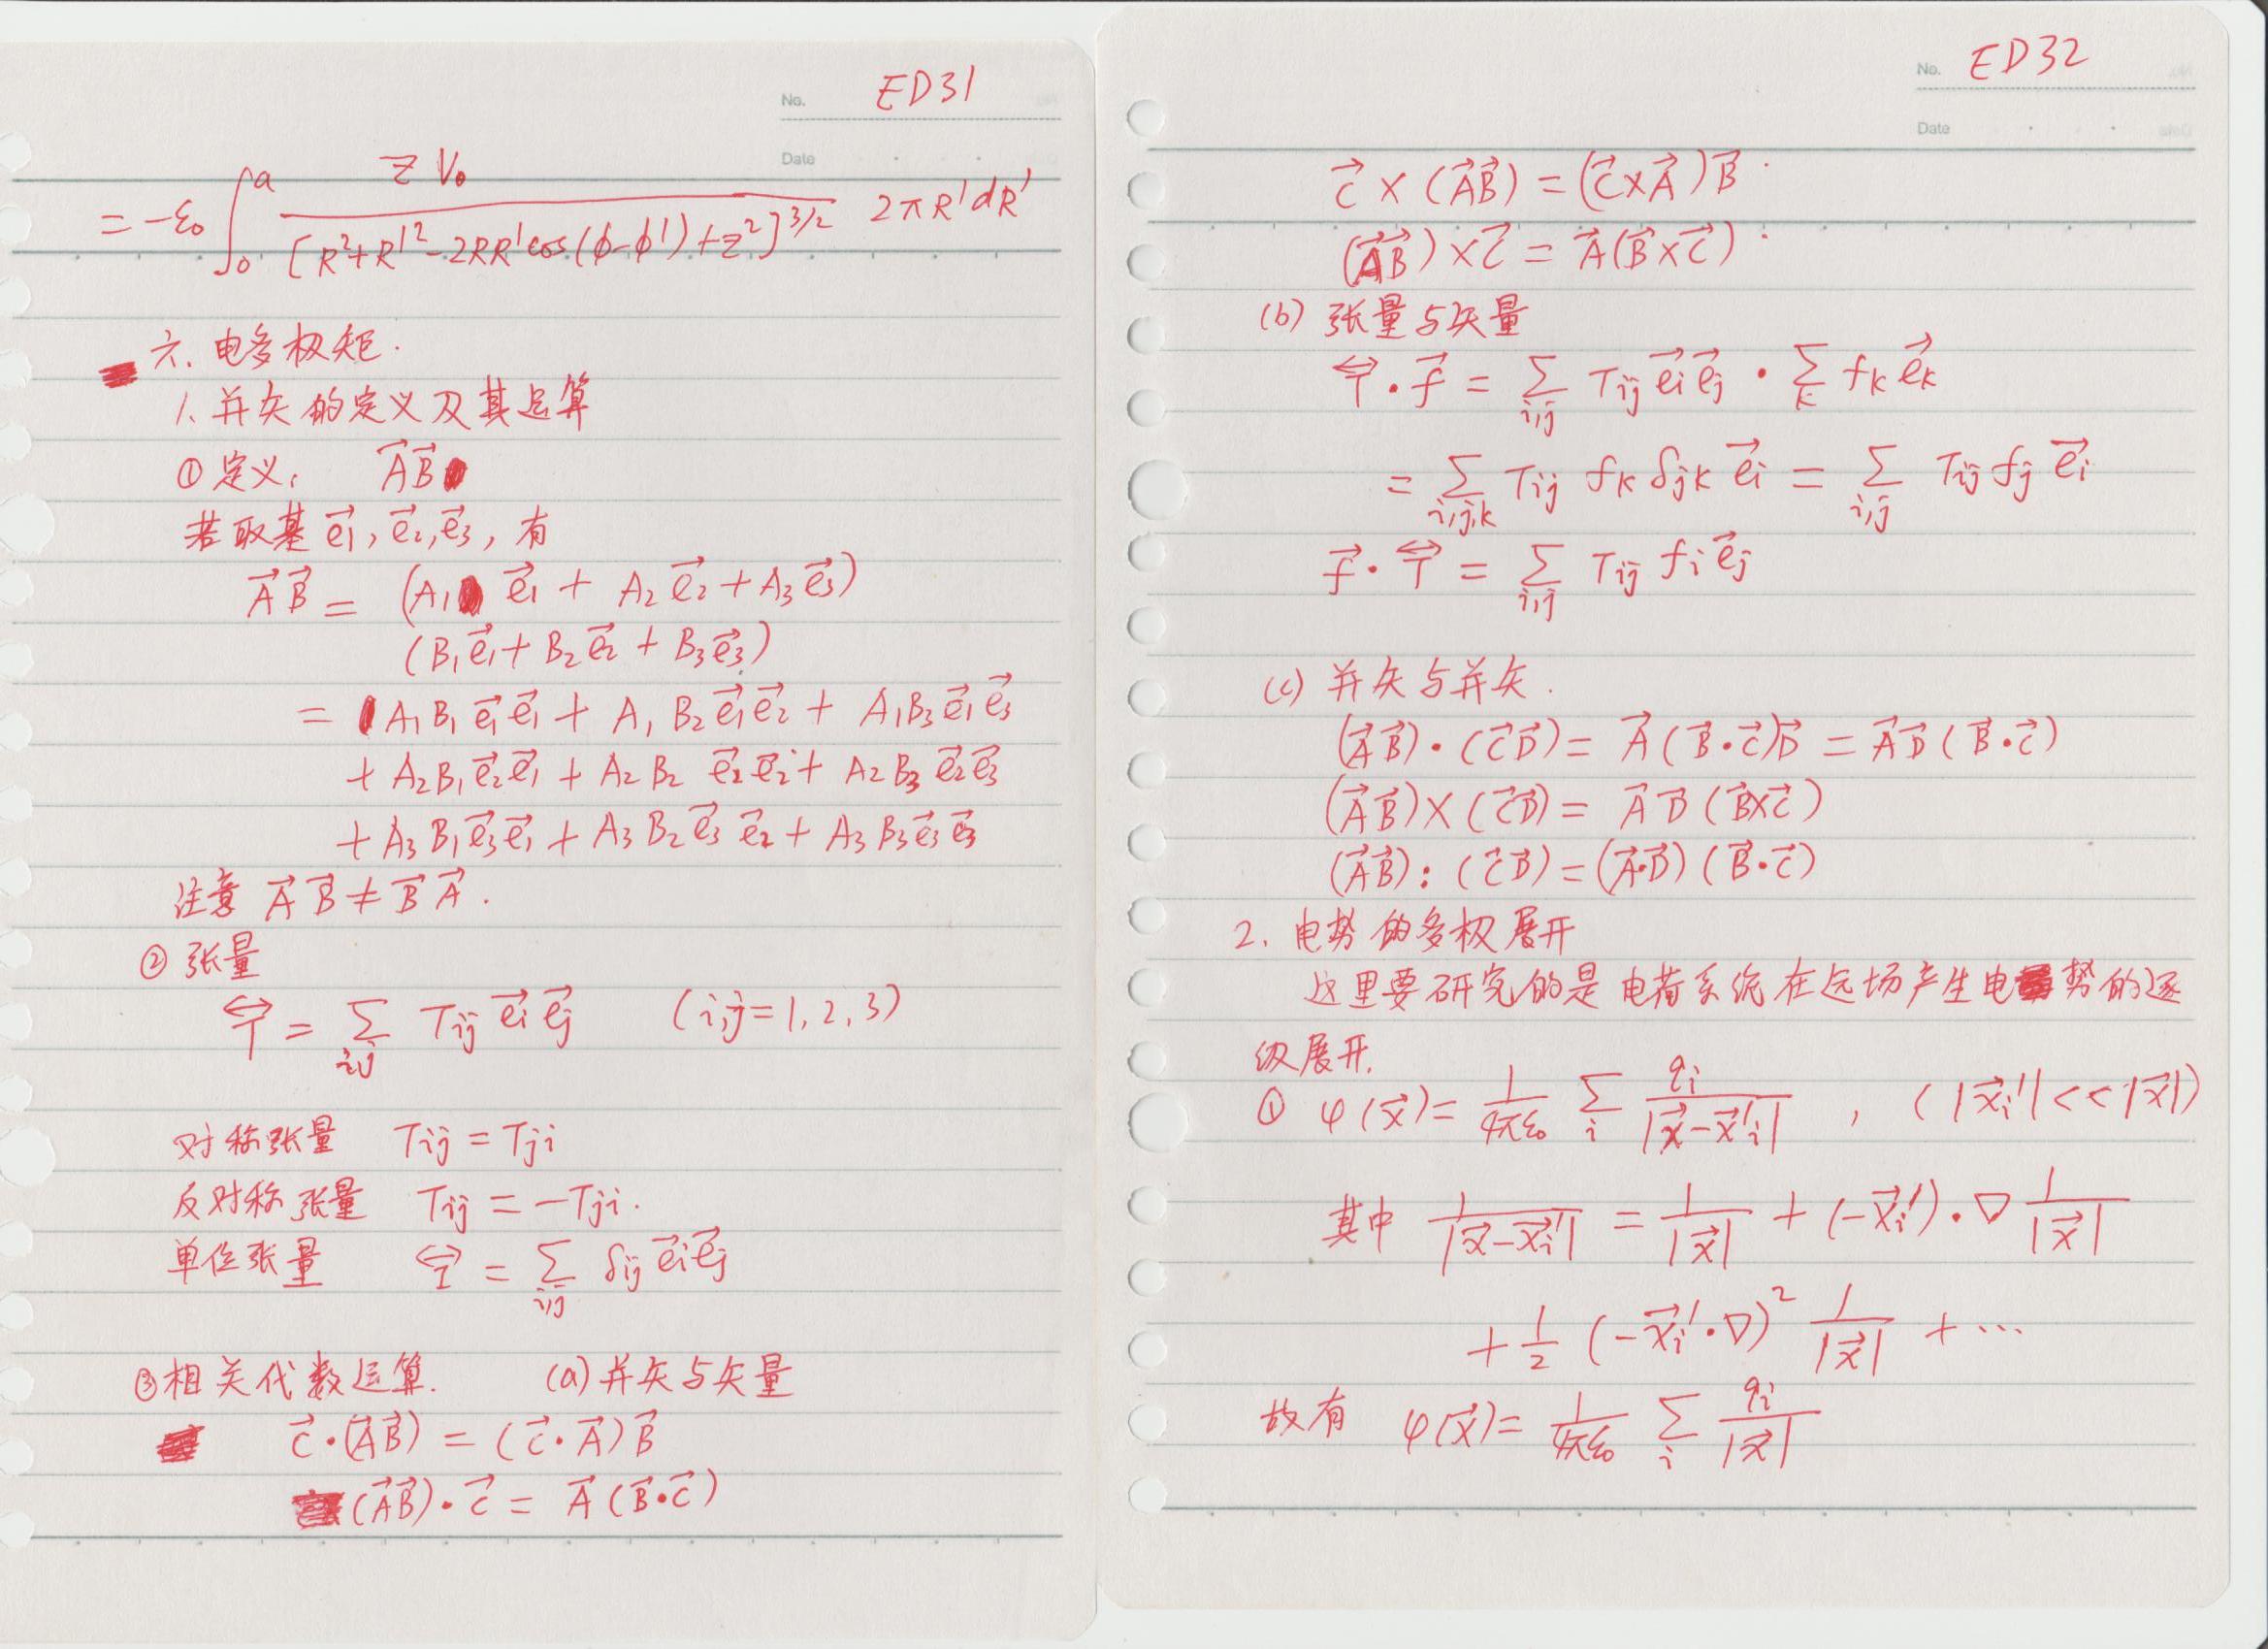 No. ED31
Date
= -ε₀ ∫₀ᵃ z V₀ / [R²+R'²-2RR'cos(φ-φ')+z²]^{3/2} 2πR'dR'
六.电多极矩.
1、并矢的定义及其运算
①定义: A⃗B⃗
若取基 e⃗₁, e⃗₂, e⃗₃, 有
A⃗B⃗ = (A₁e⃗₁ + A₂e⃗₂ + A₃e⃗₃)
(B₁e⃗₁ + B₂e⃗₂ + B₃e⃗₃)
= A₁B₁e⃗₁e⃗₁ + A₁B₂e⃗₁e⃗₂ + A₁B₃e⃗₁e⃗₃
+ A₂B₁e⃗₂e⃗₁ + A₂B₂e⃗₂e⃗₂ + A₂B₃e⃗₂e⃗₃
+ A₃B₁e⃗₃e⃗₁ + A₃B₂e⃗₃e⃗₂ + A₃B₃e⃗₃e⃗₃
注意 A⃗B⃗ ≠ B⃗A⃗.
②张量
T⃡ = Σ_{i,j} T_{ij} e⃗_i e⃗_j (i,j=1,2,3)
对称张量 T_{ij} = T_{ji}
反对称张量 T_{ij} = -T_{ji}.
单位张量 I⃡ = Σ_{i,j} δ_{ij} e⃗_i e⃗_j
③相关代数运算. (a)并矢与矢量
C⃗·(A⃗B⃗) = (C⃗·A⃗)B⃗
(A⃗B⃗)·C⃗ = A⃗(B⃗·C⃗)
No. ED32
Date
C⃗×(A⃗B⃗) = (C⃗×A⃗)B⃗.
(A⃗B⃗)×C⃗ = A⃗(B⃗×C⃗).
(b) 张量与矢量
T⃡·f⃗ = Σ_{i,j} T_{ij} e⃗_i e⃗_j · Σ_k f_k e⃗_k
= Σ_{i,j,k} T_{ij} f_k δ_{jk} e⃗_i = Σ_{i,j} T_{ij} f_j e⃗_i
f⃗·T⃡ = Σ_{i,j} T_{ij} f_i e⃗_j
(c) 并矢与并矢.
(A⃗B⃗)·(C⃗D⃗) = A⃗(B⃗·C⃗)D⃗ = A⃗D⃗(B⃗·C⃗)
(A⃗B⃗)×(C⃗D⃗) = A⃗D⃗(B⃗×C⃗)
(A⃗B⃗):(C⃗D⃗) = (A⃗·D⃗)(B⃗·C⃗)
2.电势的多极展开
这里要研究的是电荷系统在远场产生电势的逐
级展开.
① φ(x⃗) = 1/(4πε₀) Σ_i q_i/|x⃗-x⃗'_i| , (|x⃗_i'| << |x⃗|)
其中 1/|x⃗-x⃗_i'| = 1/|x⃗| + (-x⃗_i')·∇ 1/|x⃗|
+ 1/2 (-x⃗_i'·∇)² 1/|x⃗| + ···
故有 φ(x⃗) = 1/(4πε₀) Σ_i q_i/|x⃗|